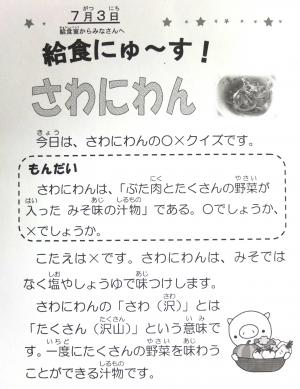 7月3日
給食室からみなさんへ
給食にゅ～す！
さわにわん
今日は、さわにわんの○×クイズです。
もんだい
さわにわんは、「ぶた肉とたくさんの野菜が
入った みそ味の汁物」である。○でしょうか、
×でしょうか。
こたえは×です。さわにわんは、みそでは
なく塩やしょうゆで味つけします。
さわにわんの「さわ（沢）」とは
「たくさん（沢山）」という意味で
す。一度にたくさんの野菜を味わう
ことができる汁物です。